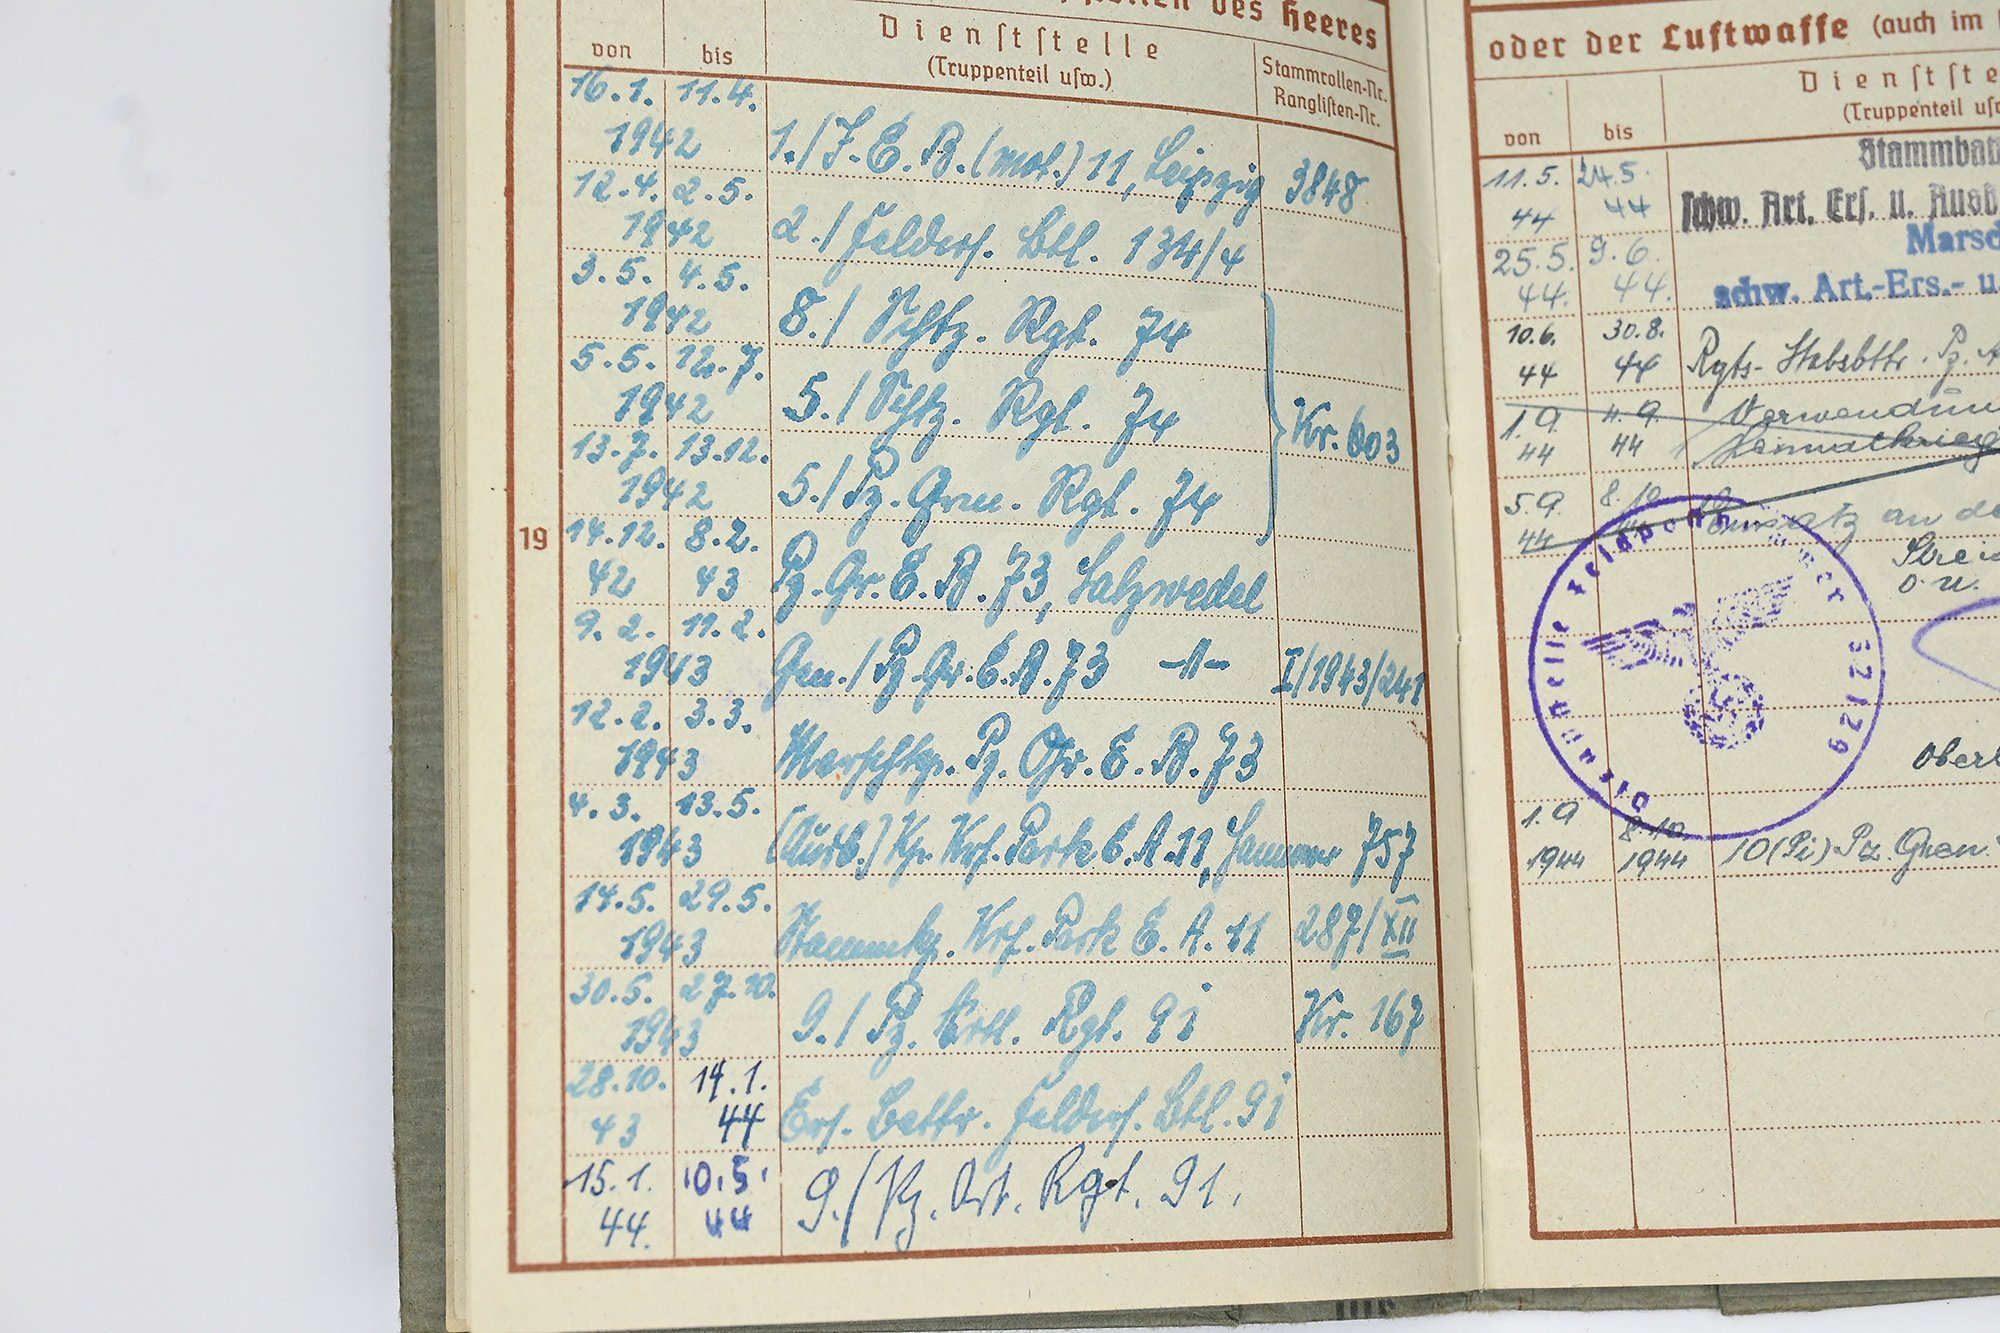 des Heeres
von bis Dienststelle
(Truppenteil usw.)
Stammrollen-Nr.
Ranglisten-Nr.
16.1. 11.4.
1942 1./J.E.B.(mot.) 11, Leipzig 3848
12.4. 2.5.
1942 2./Felders. Btl. 134/4
3.5. 4.5.
1942 8./Schtz. Rgt. 74
5.5. 12.7.
1942 5./Schtz. Rgt. 74 Kr. 603
13.7. 13.12.
1942 5./Pz. Gren. Rgt. 74
19
14.12. 8.2.
42 43 Pz.Gr.E.B.73, Salzwedel
9.2. 11.2.
1943 Gen./Pz.Gr.E.A.73 -"- I/1943/241
12.2. 3.3.
1943 Marschkp. Pz. Gr. E. B. 73
4.3. 13.5.
1943 (Ausb.) Kp. Krf. Park E.A.11, Hannover 757
14.5. 29.5.
1943 Stammkp. Krf. Park E.A. 11 287/XII
30.5. 27.10.
1943 9./Pz. Artl. Rgt. 91 Kr. 167
28.10. 14.1.
43 44 Ers. Battr. Felders. Btl. 91
15.1. 10.5.
44. 44 9./Pz. Art. Rgt. 91.
oder der Luftwaffe (auch im
von bis Dienstste
(Truppenteil usw
11.5. 24.5. Stammbat
44 44 schw. Art. Ers. u. Ausb
25.5. 9.6. Marsc
44. 44. schw. Art.-Ers.- u.
10.6. 30.8.
44 44 Rgts-Stabsbttr. Pz. A
1.9. 4.9. Verwendun
44 44 Heimatkrieg
5.9. 8.10 Einsatz an de
44
Strei
o. u.
Dienststelle Feldpostnummer 32129
Oberl
1.9 8.10
1944 1944 10(Pi) Pz. Gren.